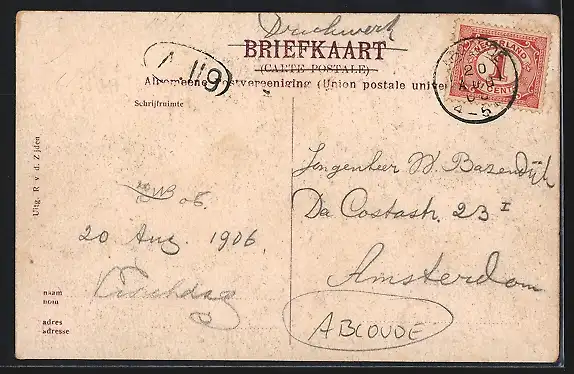 Drukwerk
BRIEFKAART
(CARTE POSTALE)
Algemeene Postvereeniging (Union postale univer
Schrijfruimte
NEDERLAND
1
CENT
20
AUG
4-5
A 119
Uitg. R v. d. Zijden
06.
20 Aug. 1906
naam
nom
adres
adresse
W. Bazendijk
Da Costastr. 23 I
Amsterdam
ABCOUDE